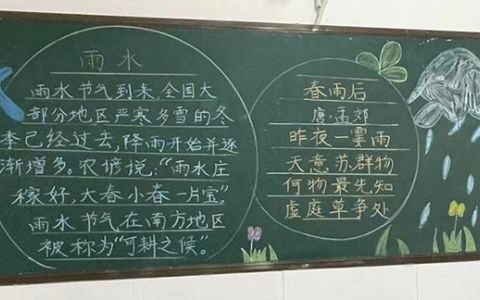 雨水
雨水节气到来,全国大
部分地区严寒多雪的冬
季已经过去,降雨开始并逐
渐增多。农谚说:“雨水庄
稼好,大春小春一片宝”。
雨水节气在南方地区
被称为“可耕之候”。
春雨后
唐·孟郊
昨夜一霎雨
天意苏群物
何物最先知
虚庭草争处